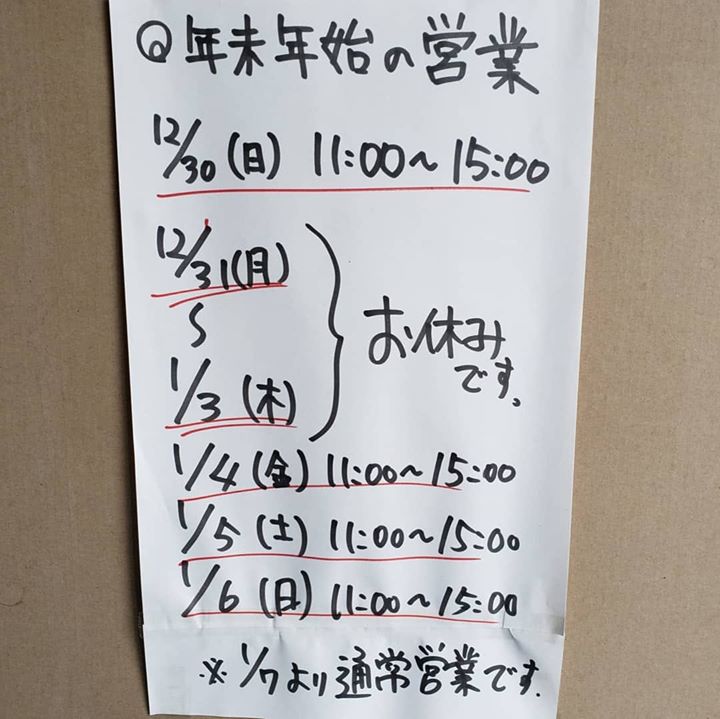 ◎年末年始の営業
12/30(日) 11:00～15:00
12/31(月)
〜
1/3(木)
お休み
です。
1/4(金) 11:00～15:00
1/5(土) 11:00～15:00
1/6(日) 11:00～15:00
※1/7より通常営業です.